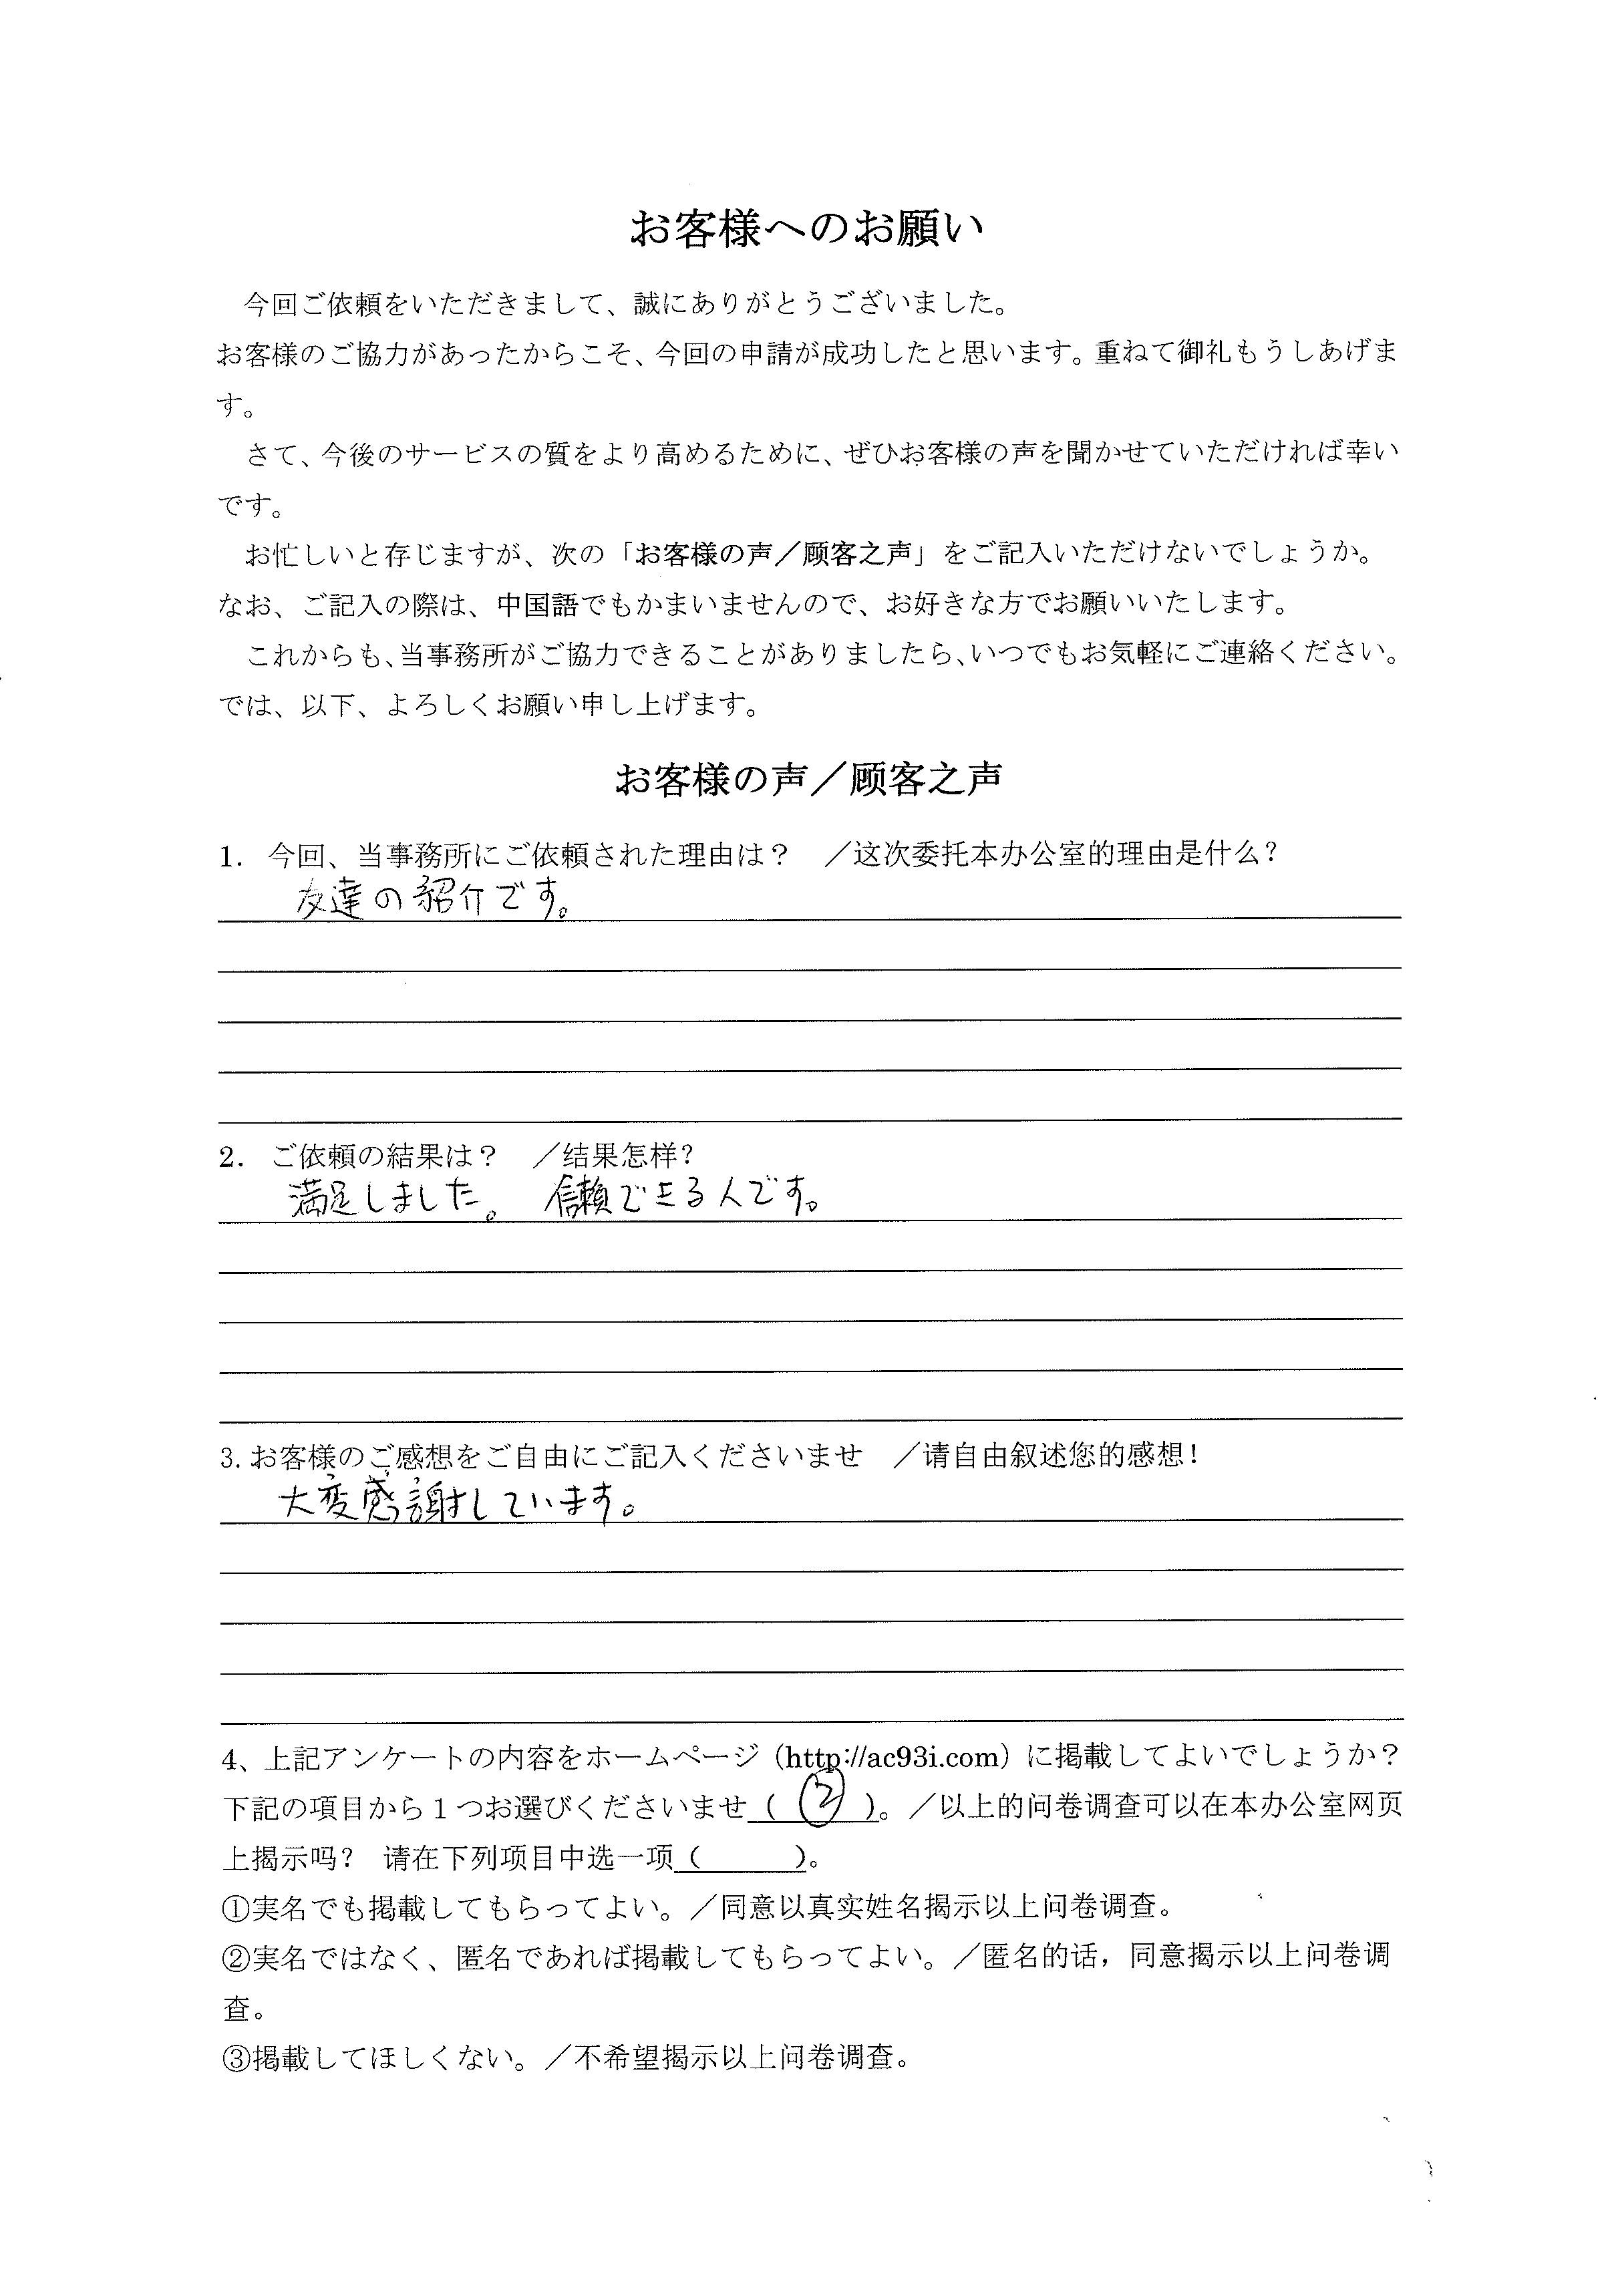 お客様へのお願い
今回ご依頼をいただきまして、誠にありがとうございました。
お客様のご協力があったからこそ、今回の申請が成功したと思います。重ねて御礼もうしあげま
す。
さて、今後のサービスの質をより高めるために、ぜひお客様の声を聞かせていただければ幸い
です。
お忙しいと存じますが、次の「お客様の声／顾客之声」をご記入いただけないでしょうか。
なお、ご記入の際は、中国語でもかまいませんので、お好きな方でお願いいたします。
これからも、当事務所がご協力できることがありましたら、いつでもお気軽にご連絡ください。
では、以下、よろしくお願い申し上げます。
お客様の声／顾客之声
1. 今回、当事務所にご依頼された理由は？ ／这次委托本办公室的理由是什么？
友達の紹介です。
2. ご依頼の結果は？ ／结果怎样？
満足しました。 信頼できる人です。
3. お客様のご感想をご自由にご記入くださいませ ／请自由叙述您的感想！
大変感謝しています。
4、上記アンケートの内容をホームページ（http://ac93i.com）に掲載してよいでしょうか？
下記の項目から１つお選びくださいませ（ ② ）。／以上的问卷调查可以在本办公室网页
上揭示吗？ 请在下列项目中选一项（ ）。
①実名でも掲載してもらってよい。／同意以真实姓名揭示以上问卷调查。
②実名ではなく、匿名であれば掲載してもらってよい。／匿名的话，同意揭示以上问卷调
查。
③掲載してほしくない。／不希望揭示以上问卷调查。